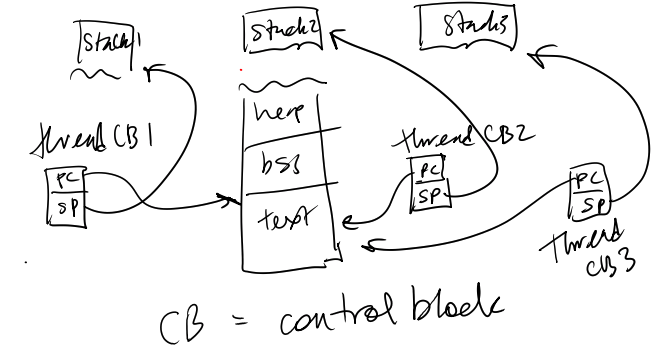 Stack1
Stack2
Stack3
heap
bss
text
thread CB1
PC
SP
thread CB2
PC
SP
PC
SP
thread
CB3
CB = control block